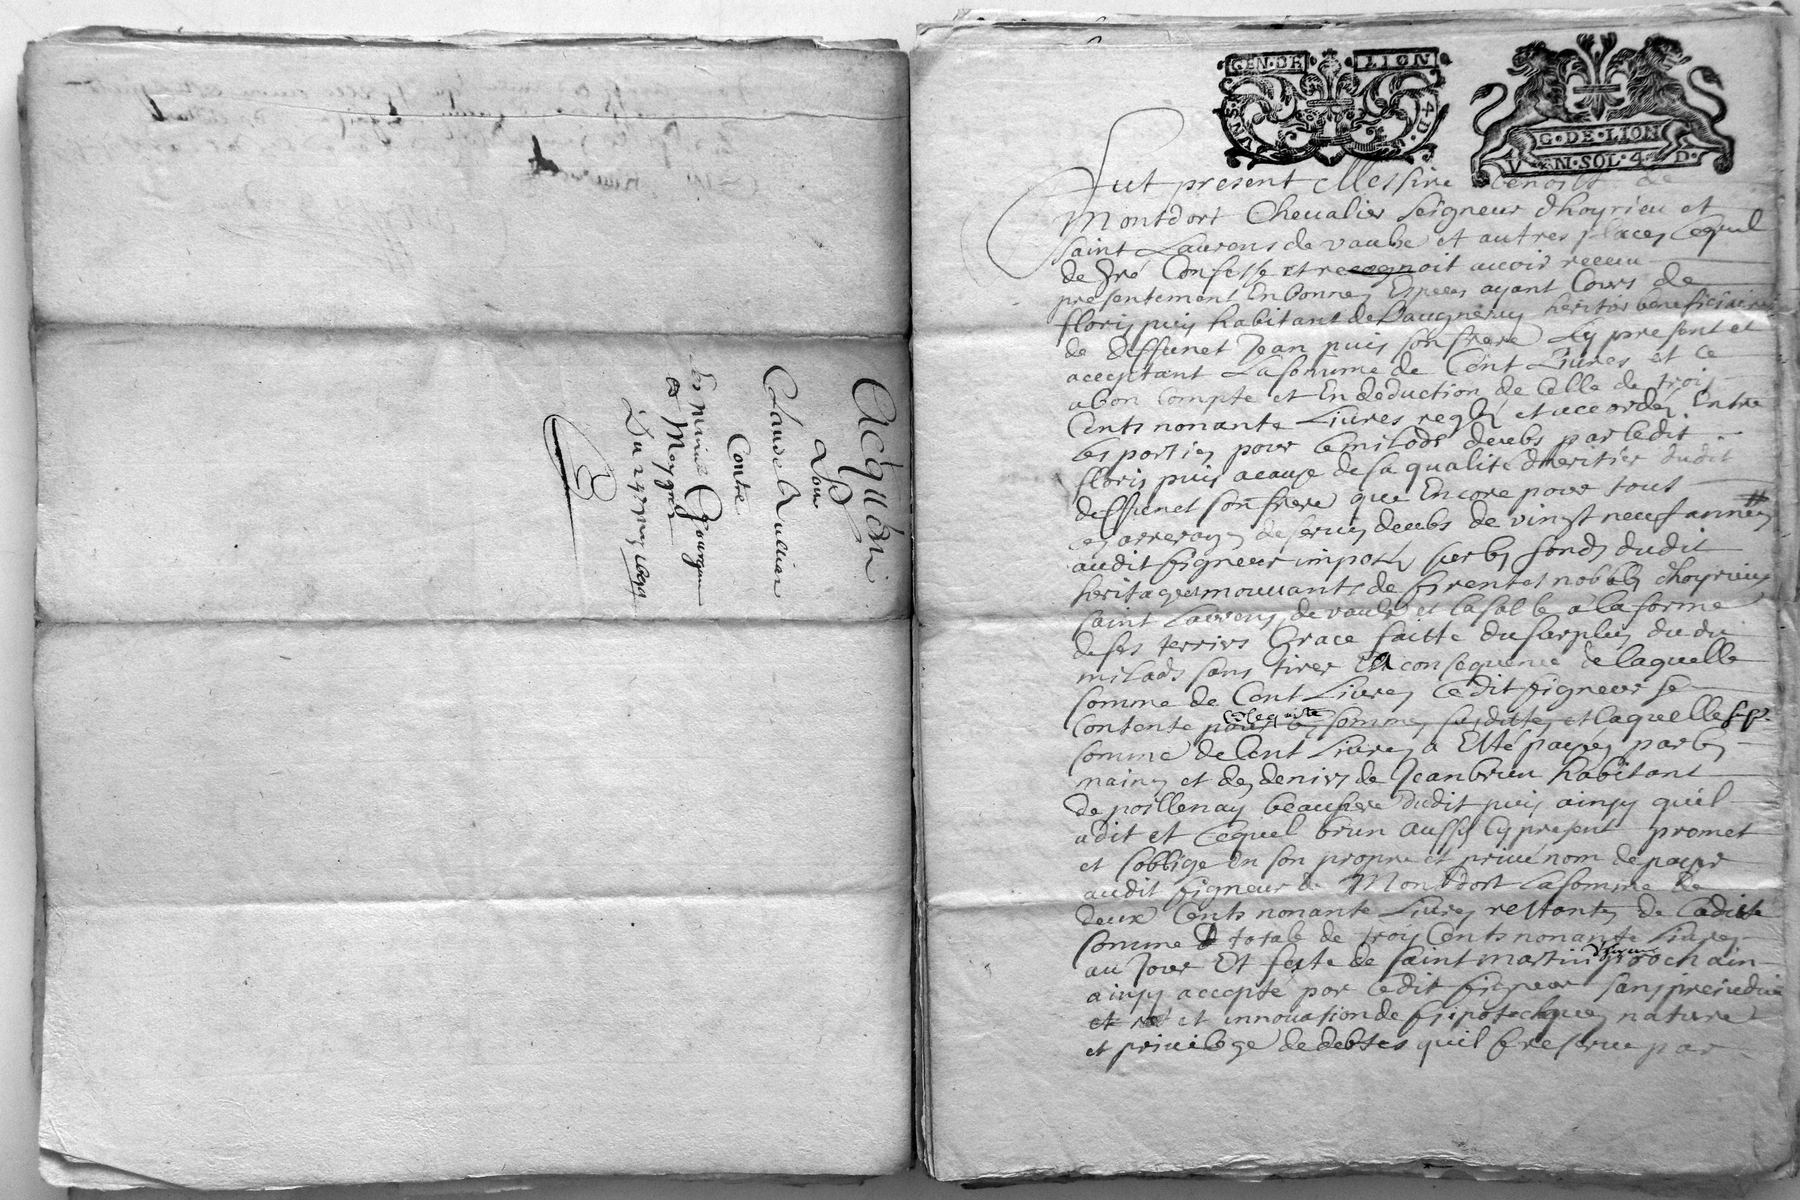 Acquon
Pour
Claude
Contre
Du 24
GEN·DE LION
VNS· 4·D·
G·DE·LION
VN·SOL·4·D·
Fut present Messire Benoist de
Montdort Chevalier seigneur dhoyrieu et
saint Laurens de vaube et autres places lequel
de gré Confesse et recognoit avoir receu
presentement En bonnes Especes ayant Cours de
floris puis habitant de heritier beneficiaire
de deffunet Jean puis son frere Cy present et
aceptant La somme de Cent Livres et ce
abon Compte et En deduction de Celle de trois
Cents nonante Livres reglés et accordés Entre
les parties pour le milods deubs par ledit
floris puis acause de sa qualité dheritier dudit
deffunet son frere que Encore pour tout
les arrerages de servis deubs de vingt neuf années
audit seigneur imposés sur les fonds dudit
heritages mouvants de ses rentes nobles dhoyrieu
saint Laurens de vaube et la salle a la forme
de ses terriers Grace faitte du surplus du du
milods sans tirer En consequence de laquelle
somme de Cent Livres ledit seigneur se
Contente sommes susdittes et laquelle
somme de Cent Livres a Esté payée par les
mains et des deniers de Jean brun habitant
de pollenay beaupere dudit puis ainsy quil
adit et lequel brun aussy Cy present promet
et soblige En son propre et privé nom de payer
audit seigneur de Montdort La somme de
deux Cents nonante Livres restantes de Laditte
somme totale de trois Cents nonante Livres
au Jour Et feste de saint martin prochain
ainsy accepté par ledit seigneur sans prejudice
et et innovation de hipoteques nature
et privilege de debtes quil se reserve par